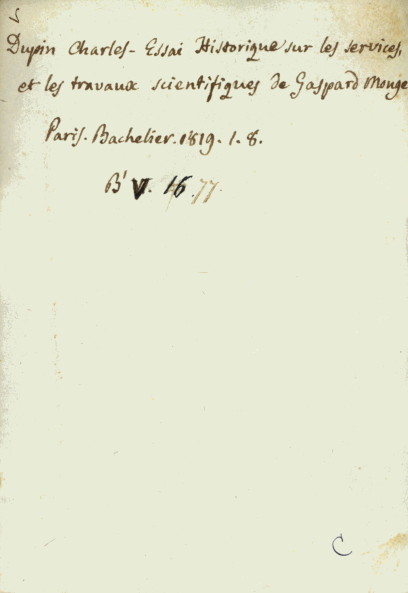 Dupin Charles - Essai Historique sur les services,
et les travaux scientifiques de Gaspard Monge
Paris. Bachelier. 1819. 1. 8.
B' V. 16.77.
C